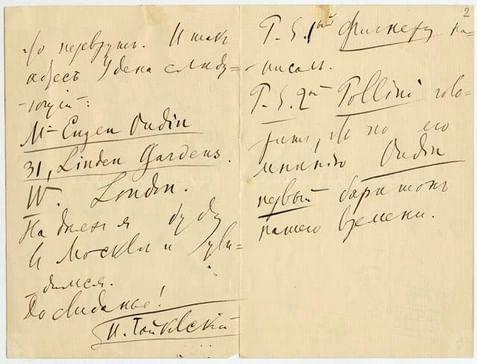 -то переврутъ. И такъ
адресъ Удена слѣду-
-ющій:
Mr Eugen Oudin
31, Linden Gardens.
W. London.
На дняхъ я буду
въ Москвѣ и уви-
димся.
До свиданья!
П. Чайковскій
2
P. S. 1ый Фишеру на-
-писалъ.
P. S. 2ой Pollini гово-
ритъ, что по его
мнѣнію Oudin
первый баритонъ
нашего времени.